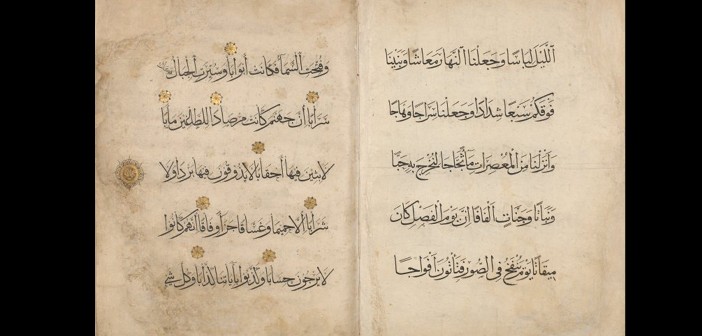 اَللَّيْلَ لِبَاسًا وَجَعَلْنَا النَّهَارَ مَعَاشًا وَبَنَيْنَا
فَوْقَكُمْ سَبْعًا شِدَادًا وَجَعَلْنَا سِرَاجًا وَهَّاجًا
وَاَنْزَلْنَا مِنَ الْمُعْصِرَاتِ مَآءً ثَجَّاجًا لِنُخْرِجَ بِهِ حَبًّا
وَنَبَاتًا وَجَنَّاتٍ اَلْفَافًا اِنَّ يَوْمَ الْفَصْلِ كَانَ
مِيقَاتًا يَوْمَ يُنْفَخُ فِي الصُّورِ فَتَأْتُونَ اَفْوَاجًا
وَفُتِحَتِ السَّمَآءُ فَكَانَتْ اَبْوَابًا وَسُيِّرَتِ الْجِبَالُ
سَرَابًا اِنَّ جَهَنَّمَ كَانَتْ مِرْصَادًا لِلطَّاغِينَ مَآبًا
لَابِثِينَ فِيهَا اَحْقَابًا لَا يَذُوقُونَ فِيهَا بَرْدًا وَلَا
شَرَابًا اِلَّا حَمِيمًا وَغَسَّاقًا جَزَآءً وِفَاقًا اِنَّهُمْ كَانُوا
لَا يَرْجُونَ حِسَابًا وَكَذَّبُوا بِاٰيَاتِنَا كِذَّابًا وَكُلَّ شَيْءٍ